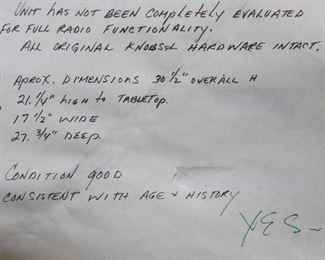 UNIT HAS NOT BEEN COMPLETELY EVALUATED
FOR FULL RADIO FUNCTIONALITY.
ALL ORIGINAL KNOBS & HARDWARE INTACT.
APROX. DIMENSIONS 30 1/2" OVERALL H
21. 1/4" HIGH TO TABLETOP.
17 1/2" WIDE
27. 3/4" DEEP.
CONDITION GOOD
CONSISTENT WITH AGE & HISTORY
YES~